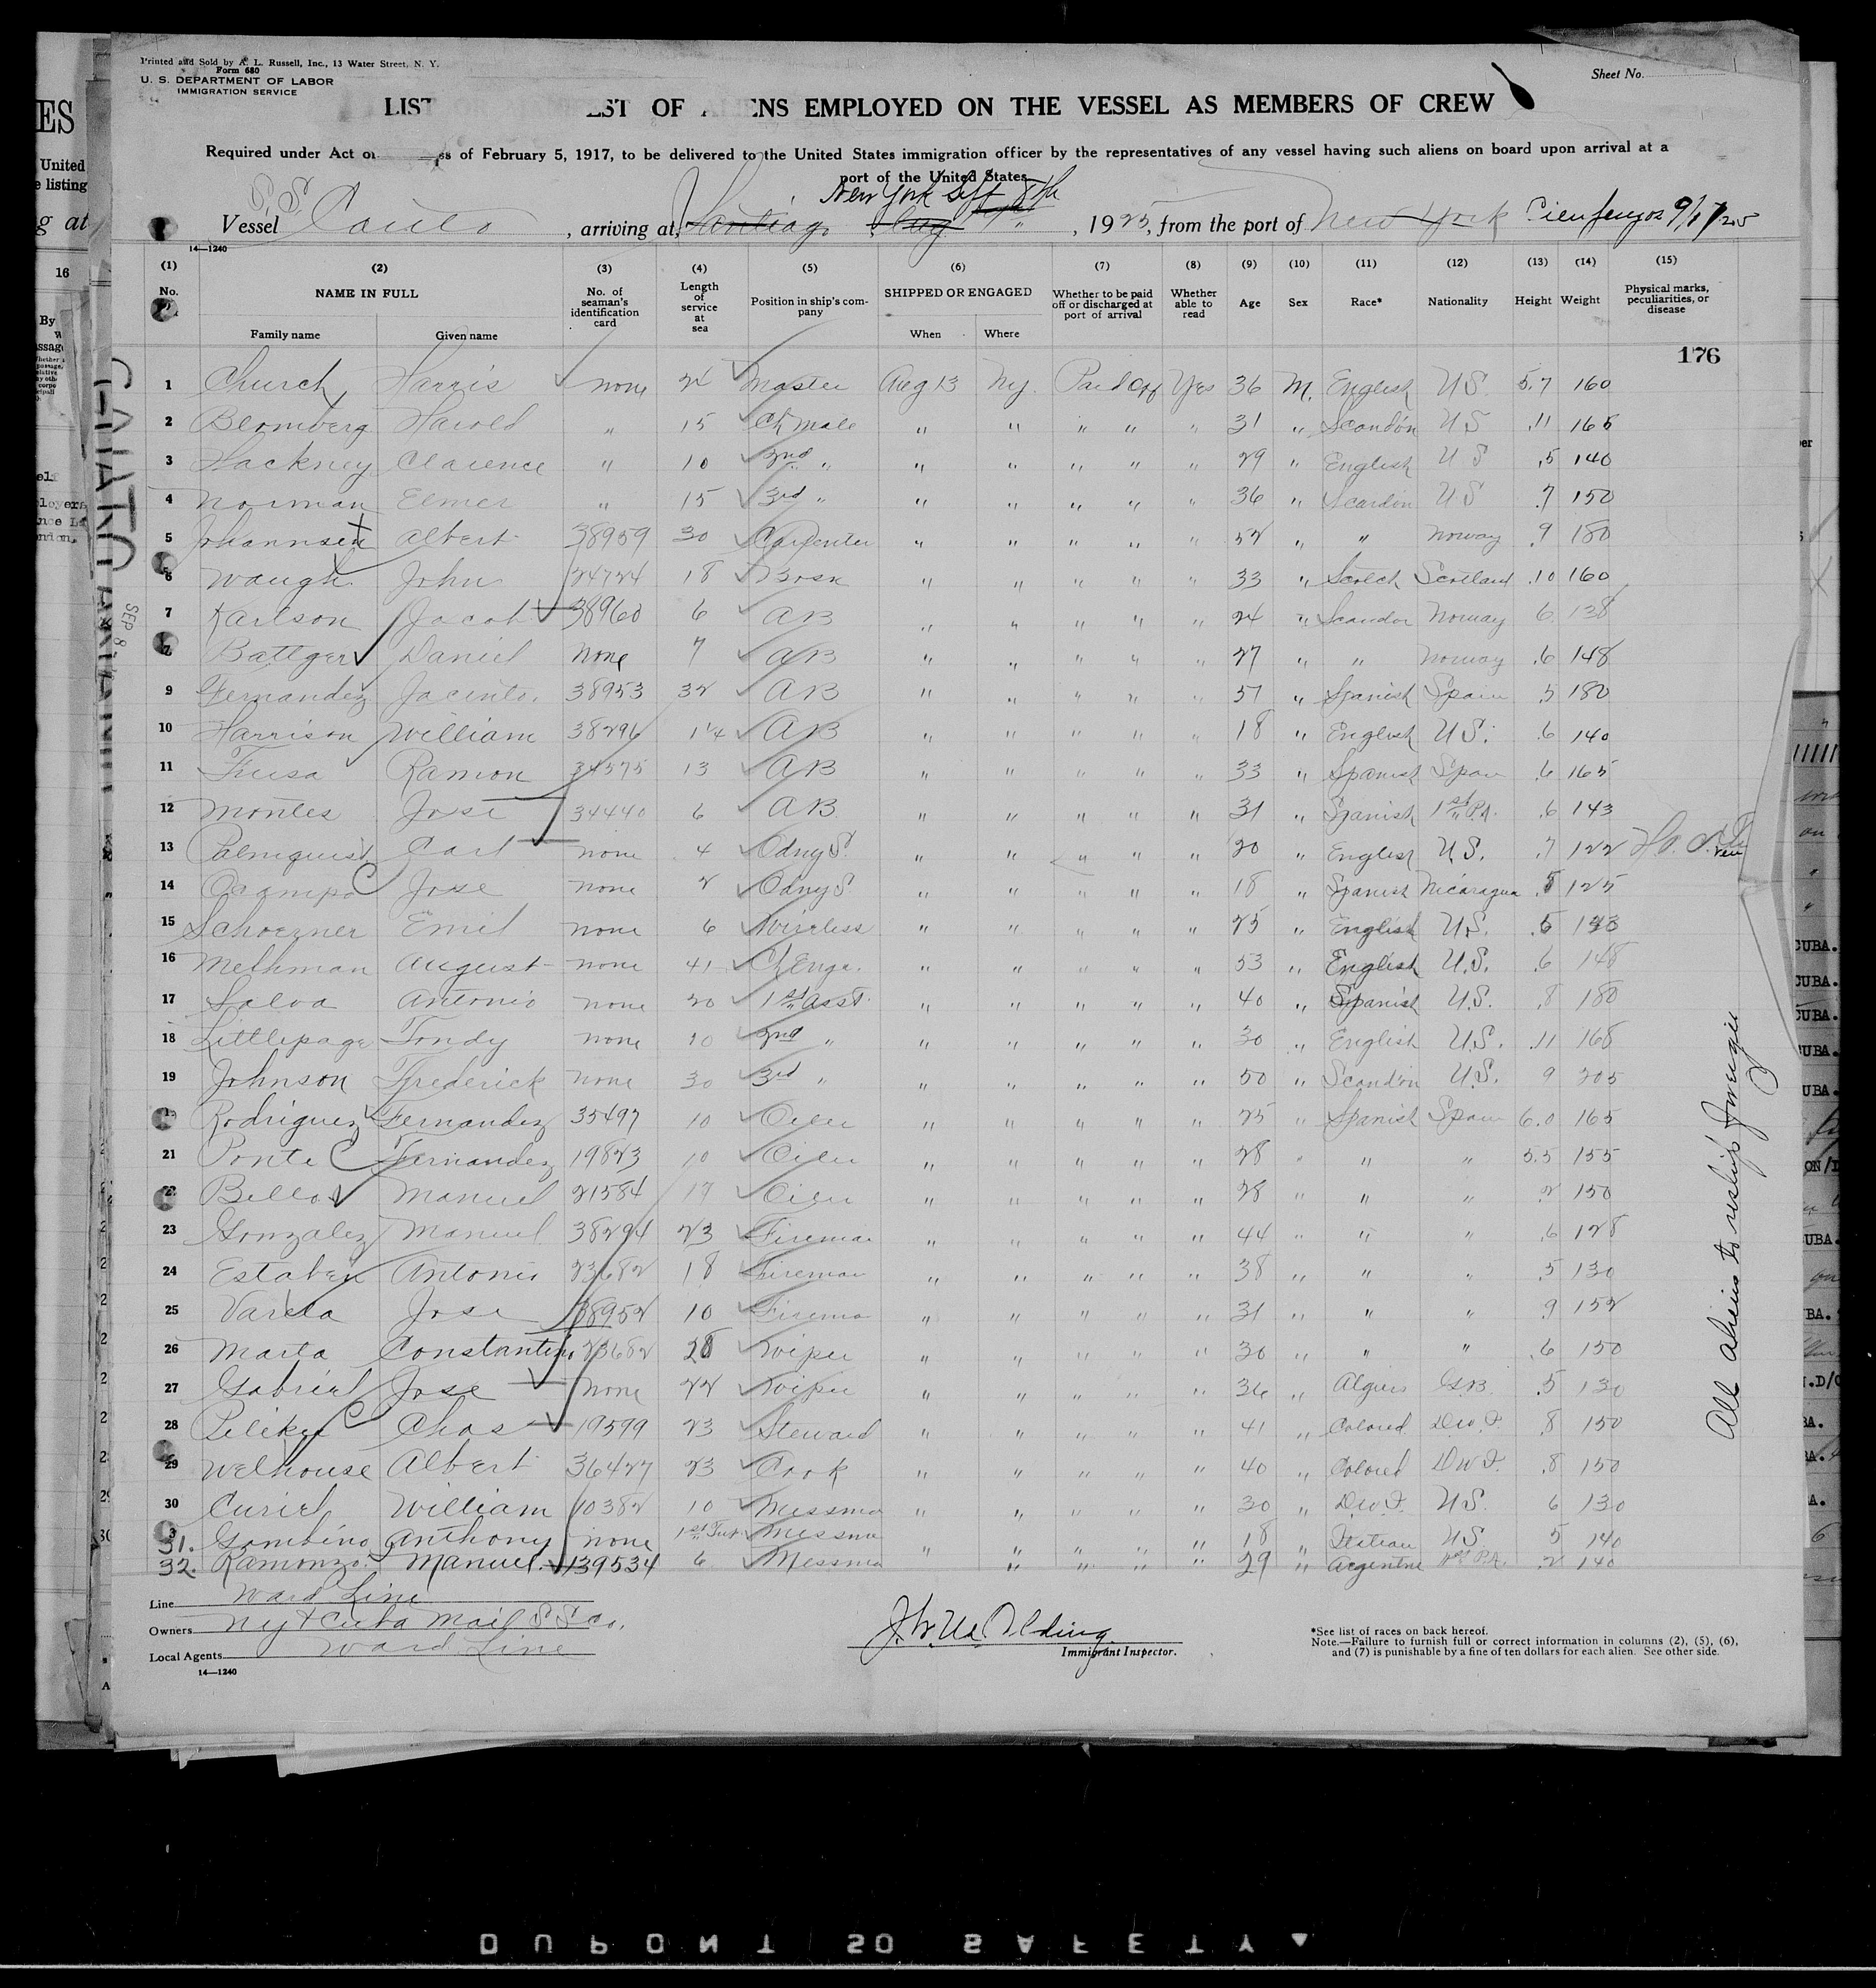 Printed and Sold by A. L. Russell, Inc., 13 Water Street, N. Y.
Form 680
U. S. DEPARTMENT OF LABOR
IMMIGRATION SERVICE
Sheet No.
LIST OF ALIENS EMPLOYED ON THE VESSEL AS MEMBERS OF CREW
Required under Act of February 5, 1917, to be delivered to the United States immigration officer by the representatives of any vessel having such aliens on board upon arrival at a
port of the United States
New York Sept 8th
Vessel S.S. Cauto, arriving at Santiago Aug, 1925, from the port of New York Cienfuegos 9/1/25
14—1240
(1) (2) (3) (4) (5) (6) (7) (8) (9) (10) (11) (12) (13) (14) (15)
No. NAME IN FULL No. of seaman's identification card Length of service at sea Position in ship's company SHIPPED OR ENGAGED Whether to be paid off or discharged at port of arrival Whether able to read Age Sex Race* Nationality Height Weight Physical marks, peculiarities, or disease
Family name Given name When Where
176
1 Church Harris none 24 Master Aug 13 Ny. Paid Off Yes 36 M. English U.S. 5.7 160
2 Blomberg Harold " 15 Ch Mate " " " " " 31 " Scandin U.S .11 165
3 Hackney Clarence " 10 2nd " " " " " " 29 " English U S .5 140
4 Norman Elmer " 15 3rd " " " " " " 36 " Scandin U.S .7 150
5 Johannsen Albert 38959 30 Carpenter " " " " " 52 " " Norway .9 180
6 Waugh John 24724 18 Bosn " " " " " 33 " Scotch Scotland .10 160
7 Karlson Jacob 38960 6 AB " " " " " 24 " Scandin Norway 6. 138
Battger Daniel None 7 AB " " " " " 27 " " Norway .6 148
9 Fernandez Jacinto. 38953 32 AB " " " " " 57 " Spanish Spain .5 180
10 Harrison William 38296 1/4 AB " " " " " 18 " English U.S. .6 140
11 Ramon 34575 13 AB " " " " " 33 " Spanish Spain .6 165
12 Montes Jose 34440 6 AB " " " " " 31 " Spanish 1st P.A. .6 143
13 Palmquist Carl none 4 Odny S. " " " " " 20 " English U.S. .7 122
14 Ocampo Jose none 2 Odny S. " " " " " 18 " Spanish Nicaragua .5 125
15 Schoezner Emil none 6 Wireless " " " " " 25 " English U.S. .5
16 Methman August none 41 Ch Engr. " " " " " 53 " English U.S. .6 148
17 Salva Antonio none 20 1st Asst. " " " " " 40 " Spanish U.S. .8 180
18 Littlepage Tondy none 10 2nd " " " " " " 30 " English U.S. .11 168
19 Johnson Frederick none 30 3rd " " " " " " 50 " Scandin U.S. 9 205
Rodriguez Fernandez 35497 10 Oiler " " " " " 25 " Spanish Spain 6.0 165
21 Ponte Fernandez 19823 10 Oiler " " " " " 28 " " " 5.5 155
22 Bello Manuel 21584 17 Oiler " " " " " 28 " " " .2 150
23 Gonzalez Manuel 38294 23 Fireman " " " " " 44 " " " .6 128
24 Estaben Antonio 23682 18 Fireman " " " " " 38 " " " .5 130
25 Varela Jose 38952 10 Firema " " " " " 31 " " " .9 152
26 Maria Constantino 23682 28 Wiper " " " " " 30 " " " .6 150
27 Gabriel Jose None 22 Wiper " " " " " 36 " Algiers G.B. .5 130
28 Chas 19599 23 Steward " " " " " 41 " Colored D.W.I. .8 150
29 Welhouse Albert 36427 23 Cook " " " " " 40 " Colored D W I. .8 150
30 Curiel William 10382 10 Messma " " " " " 30 " D.W.I. U.S. 6 130
31. Gambino Anthony none 1st Trip Messma " " " " " 18 " Italian U.S. 5 140
32. Manuel 139534 6 Messma " " " " 29 " Argentine 1st P.A. .2 140
All aliens to reship foreign
Line Ward Line
Owners Ny & Cuba Mail S S Co.
Local Agents Ward Line
14—1240
Immigrant Inspector.
*See list of races on back hereof.
Note.—Failure to furnish full or correct information in columns (2), (5), (6),
and (7) is punishable by a fine of ten dollars for each alien. See other side.
DUPONT SO SAFETY